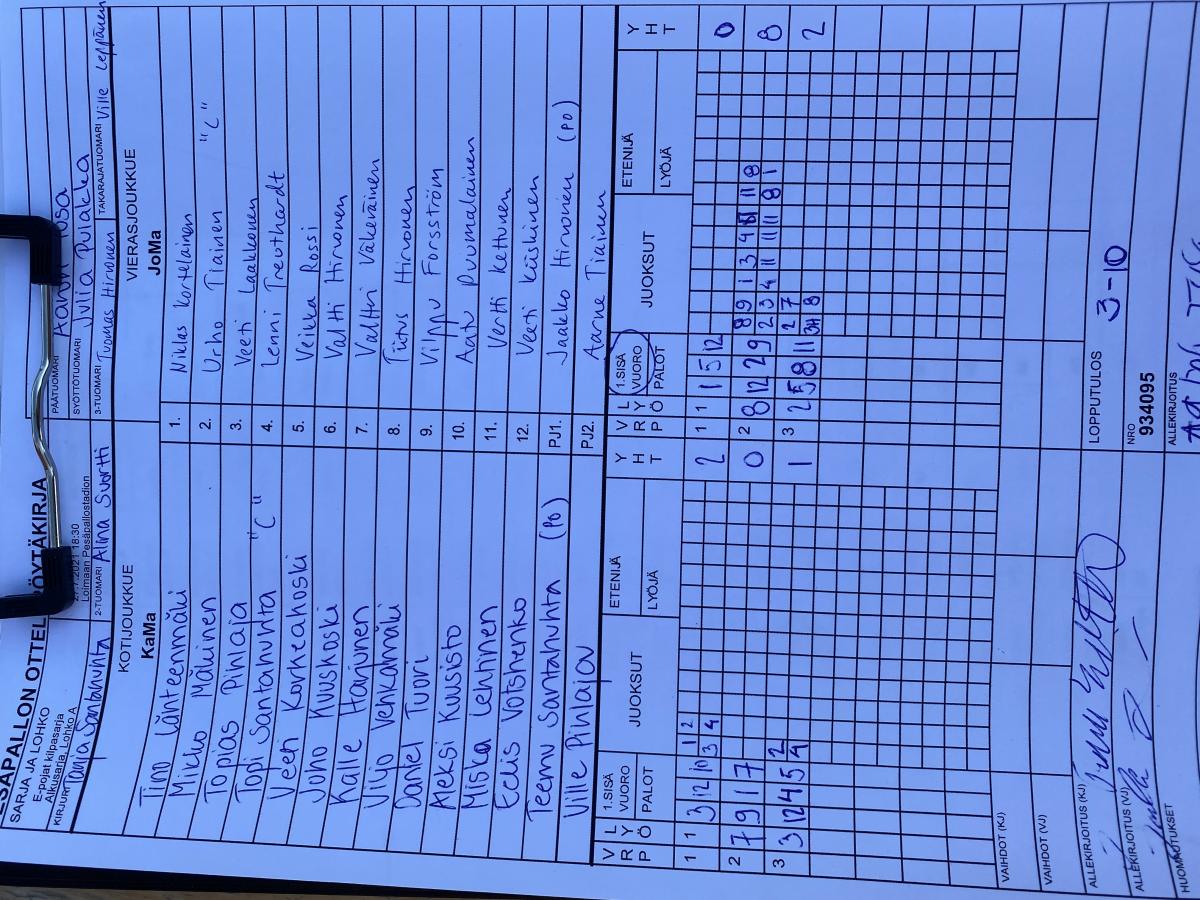 PESÄPALLON OTTELUPÖYTÄKIRJA
SARJA JA LOHKO
E-pojat kilpasarja
Alkusarja, Lohko A
27.7.2021 18:30
Loimaan Pesäpallostadion
PÄÄTUOMARI
SYÖTTÖTUOMARI Julia Pulakka
KIRJURI Tanja Santahuhta
2-TUOMARI Alina Suortti
3-TUOMARI Tuomas Hirvonen
TAKARAJATUOMARI Ville Leppänen
KOTIJOUKKUE
KaMa
VIERASJOUKKUE
JoMa
Timo Lähteenmäki 1. Niklas Kortelainen
Mikko Mäkinen 2. Urho Tiainen "C"
Topias Pihlaja 3. Veeti Laakkonen
Topi Santahuhta "C" 4. Lenni Treuthardt
Veeti Korkeahoski 5. Veikka Rossi
Juho Kuuskoski 6. Valtti Hirvonen
Kalle Harjunen 7. Valtteri Väkeväinen
Viljo Venkamäki 8. Tiitus Hirvonen
Daniel Tuori 9. Vilppu Forsström
Aleksi Kuusisto 10. Aatu Puumalainen
Miska Lehtinen 11. Vertti Kettunen
Eelis Votshenko 12. Veeti Kiiskinen
Teemu Santahuhta (PO) PJ1. Jaakko Hirvonen (PO)
Ville Pihlajav PJ2. Aarne Tiainen
V R P L Y Ö 1.SISÄ VUORO PALOT JUOKSUT ETENIJÄ LYÖJÄ Y H T
V R P L Y Ö 1.SISÄ VUORO PALOT JUOKSUT ETENIJÄ LYÖJÄ Y H T
1 1 3 12 10 1 2 2
3 4
1 1 1 5 12 0
2 7 9 1 7 0
2 8 12 2 9 8 9 1 3 4 11 8 8
2 3 4 11 11 11 8 1
3 3 12 4 5 2 1
4
3 2 5 8 11 2 7 2
8
VAIHDOT (KJ)
VAIHDOT (VJ)
ALLEKIRJOITUS (KJ)
LOPPUTULOS 3-10
ALLEKIRJOITUS (VJ)
NRO 934095
HUOMAUTUKSET
ALLEKIRJOITUS